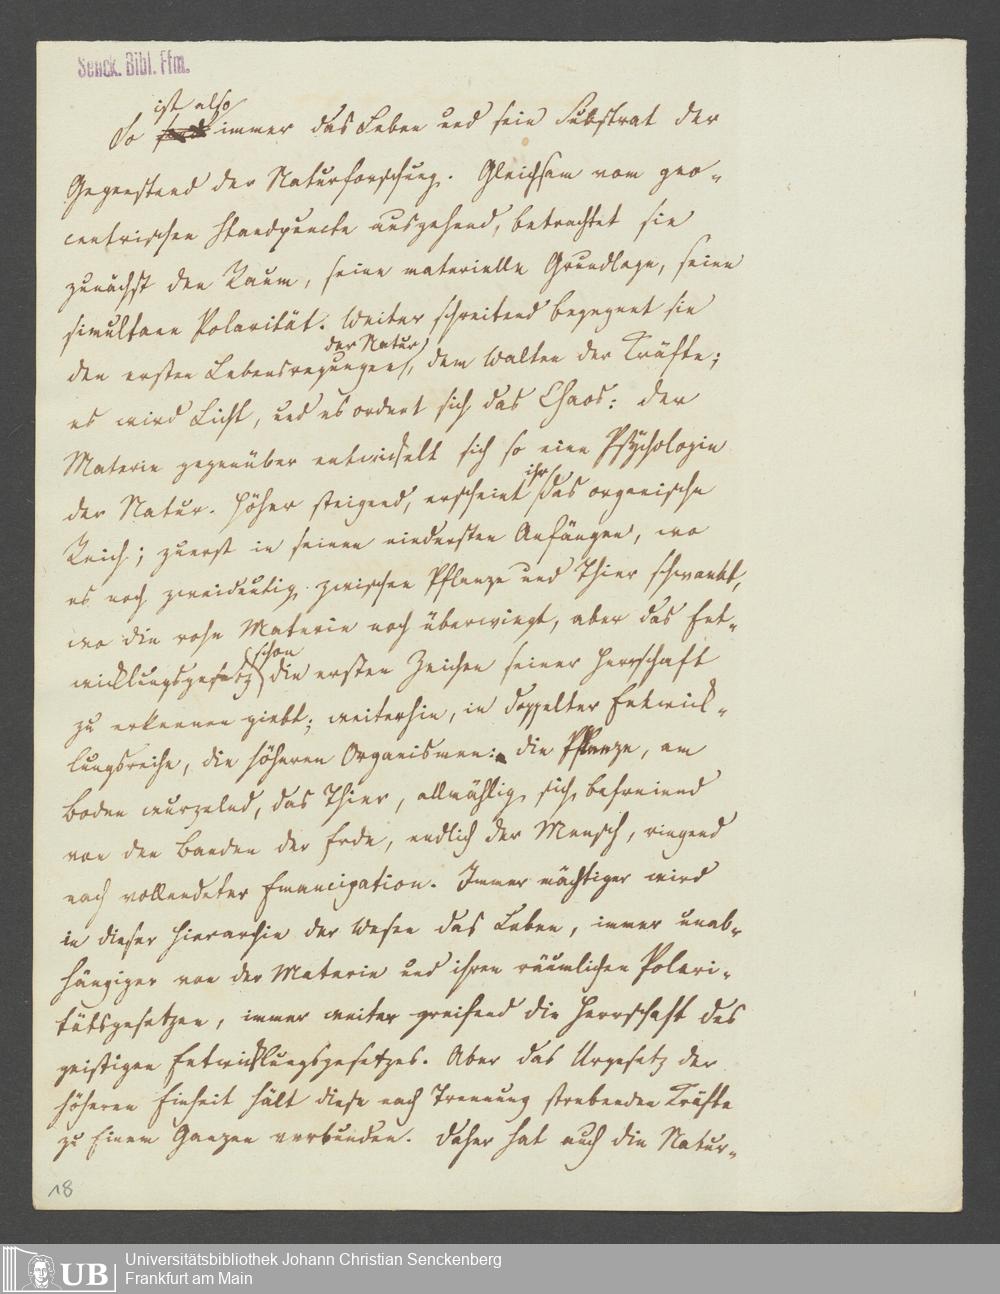 Senck. Bibl. Ffm.
ist also
So immer das Leben und sein Substrat der
Gegenstand der Naturforschung. Gleichsam vom geo-
centrischen Standpuncte ausgehend, betrachtet sie
zunächst den Raum, seine materielle Grundlage, seine
simultane Polarität. Weiter schreitend begegnet sie
der Natur
den ersten Lebensregungen, dem Walten der Kräfte;
es wird Licht, und es ordnet sich das Chaos: der
Materie gegenüber entwickelt sich so eine Psychologie
der Natur. Höher steigend, erscheint ihr das organische
Reich; zuerst in seinen niedersten Anfängen, wo
es noch zweideutig zwischen Pflanze und Thier schwankt,
wo die rohe Materie noch überwiegt, aber das Ent-
schon
wicklungsgesetz die ersten Zeichen seiner Herrschaft
zu erkennen giebt; weiterhin, in doppelter Entwick-
lungsreihe, die höheren Organismen: die Pflanze, am
Boden wurzelnd, das Thier, allmählig sich befreiend
von den Banden der Erde, endlich der Mensch, ringend
nach vollendeter Emancipation. Immer mächtiger wird
in dieser Hierarchie der Wesen das Leben, immer unab-
hängiger von der Materie und ihren räumlichen Polari-
tätsgesetzen, immer weiter greifend die Herrschaft des
geistigen Entwicklungsgesetzes. Aber das Urgesetz der
höheren Einheit hält diese nach Trennung strebenden Kräfte
zu Einem Ganzen verbunden. Daher hat auch die Natur-
18
UB
Universitätsbibliothek Johann Christian Senckenberg
Frankfurt am Main